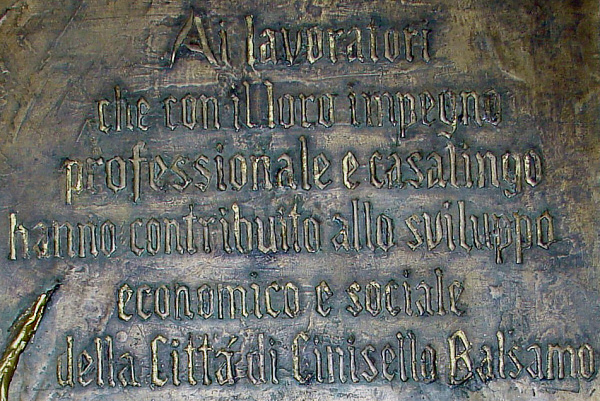 Ai lavoratori
che con il loro impegno
professionale e casalingo
hanno contribuito allo sviluppo
economico e sociale
della Cittá di Cinisello Balsamo